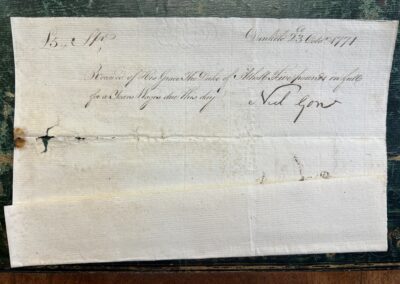 Dunkeld 23 Octr 1771
Received of His Grace The Duke of Atholl Five pounds in full
for a Years Wages due this day
Neil Gow